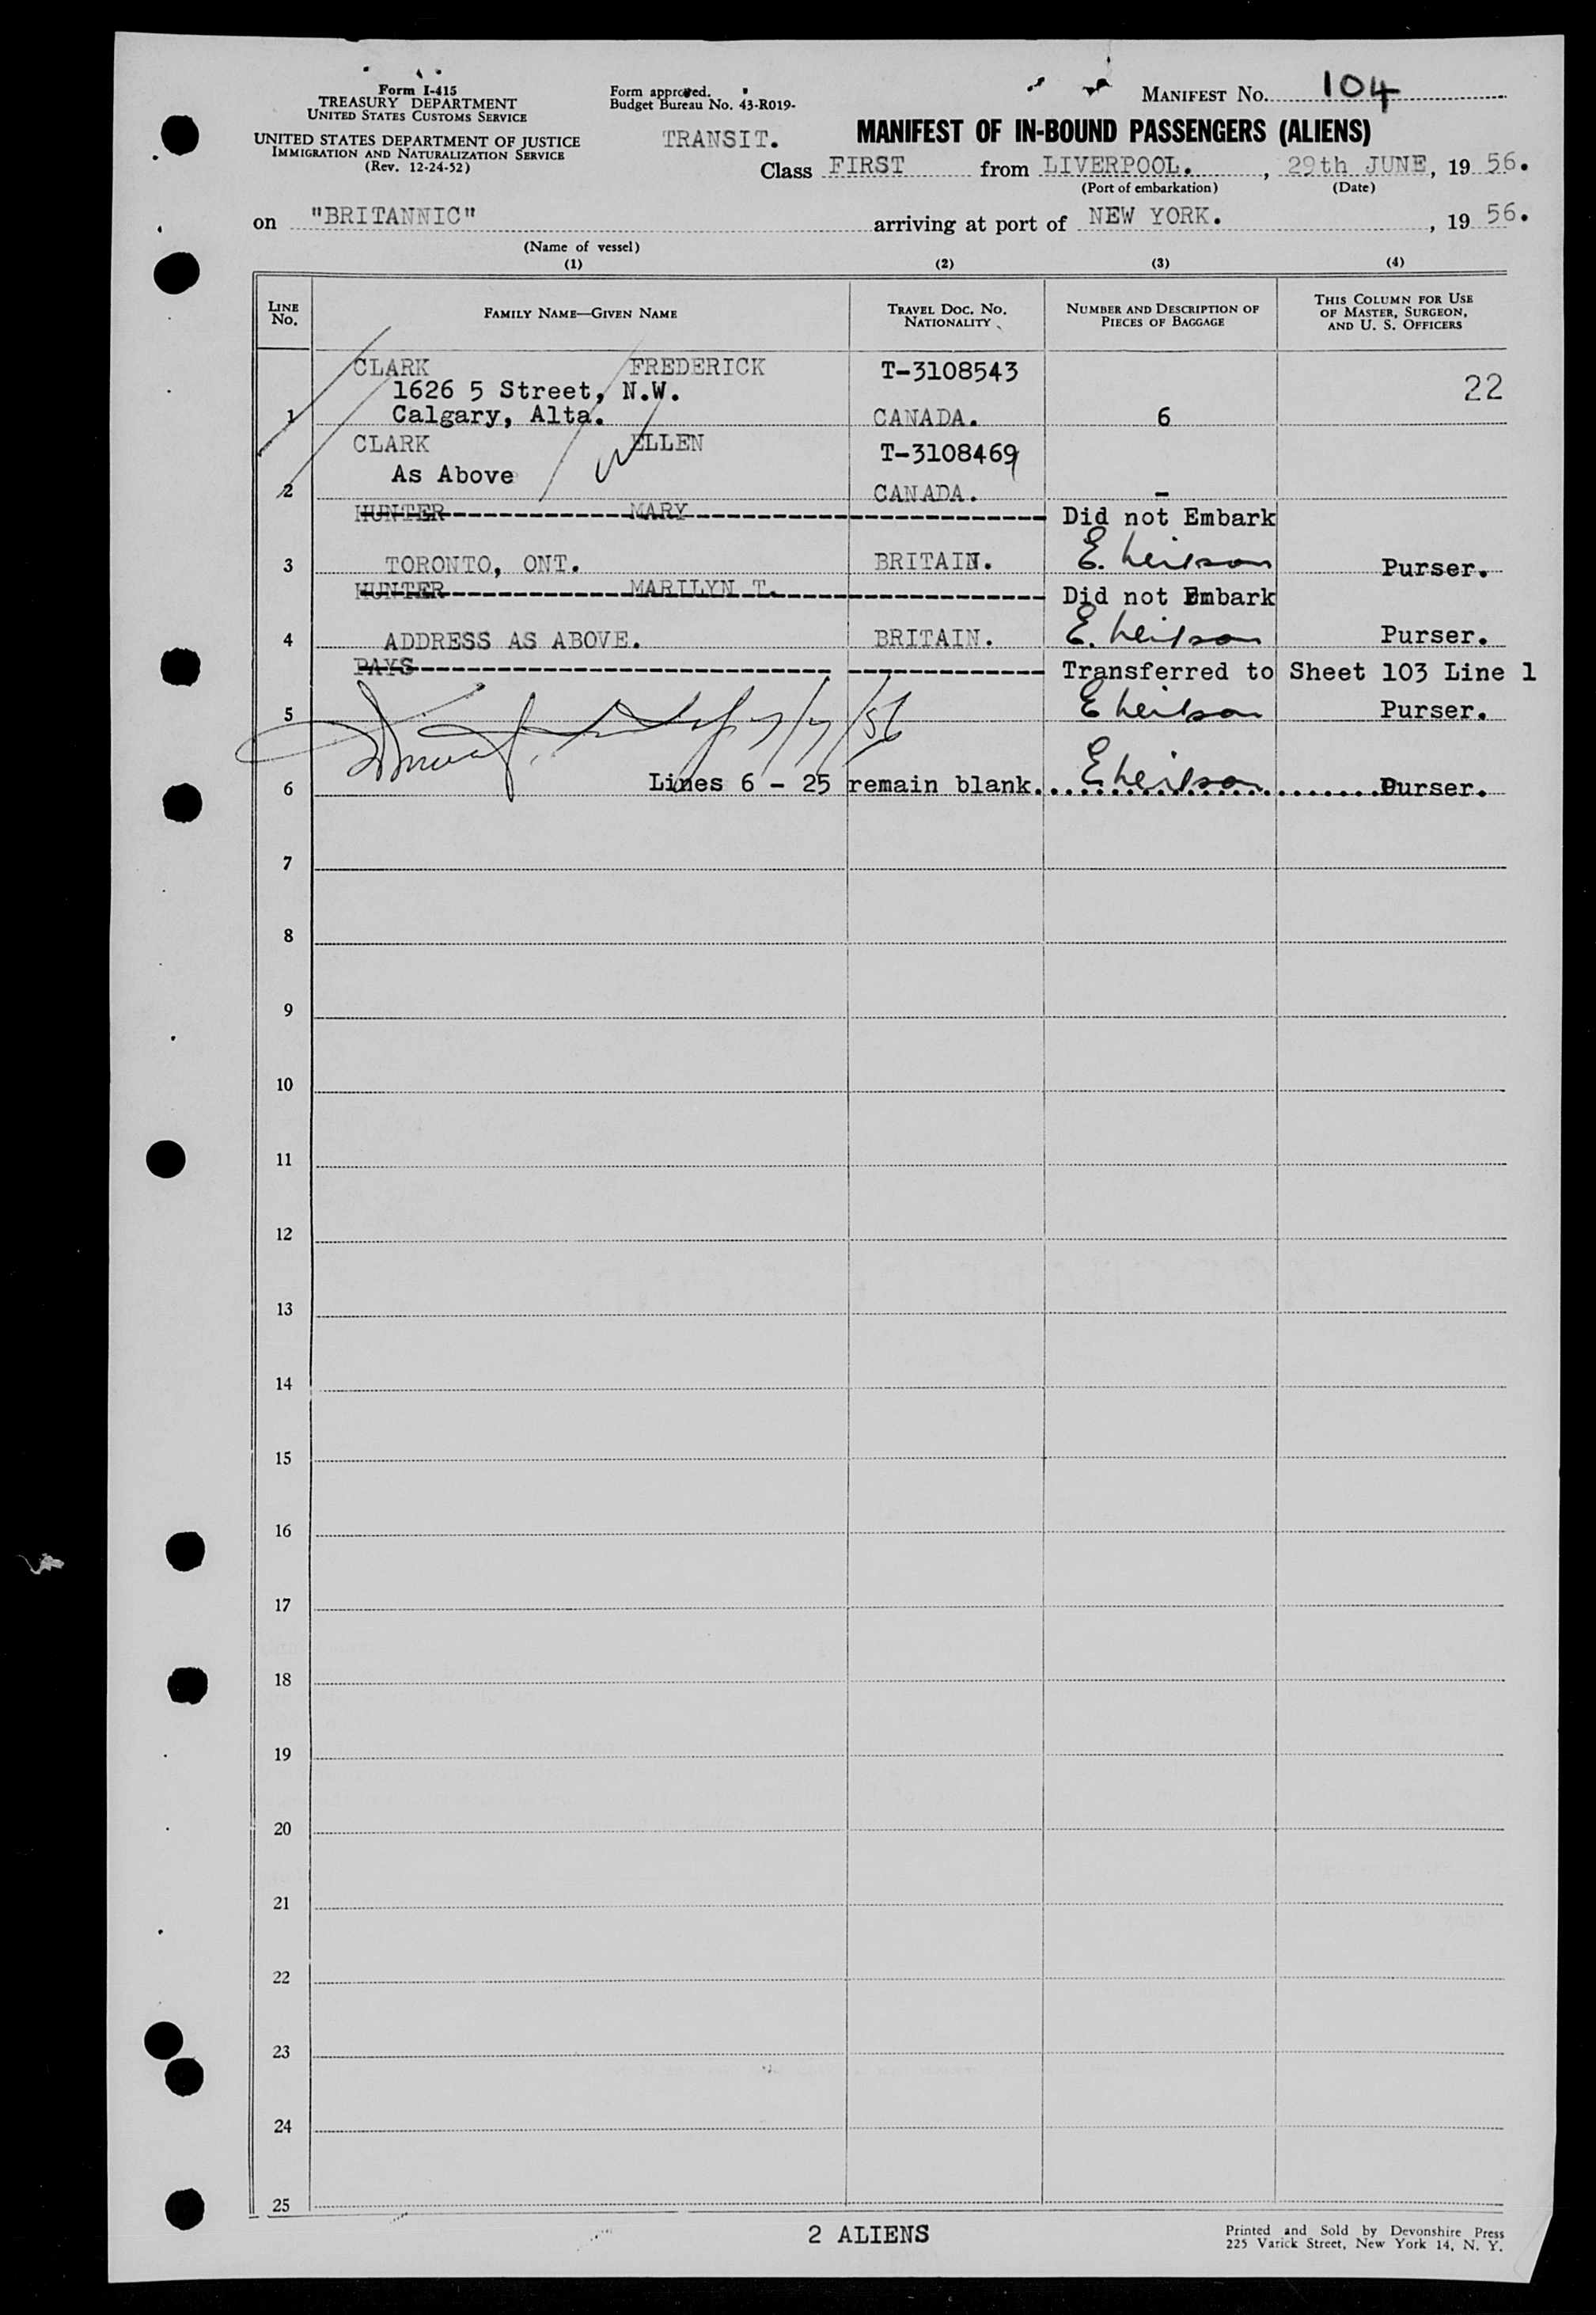 Form I-415
TREASURY DEPARTMENT
UNITED STATES CUSTOMS SERVICE
UNITED STATES DEPARTMENT OF JUSTICE
IMMIGRATION AND NATURALIZATION SERVICE
(Rev. 12-24-52)
Form approved.
Budget Bureau No. 43-R019-
TRANSIT.
MANIFEST No. 104
MANIFEST OF IN-BOUND PASSENGERS (ALIENS)
Class FIRST from LIVERPOOL. , 29th JUNE, 19 56.
(Port of embarkation) (Date)
on "BRITANNIC" arriving at port of NEW YORK. , 19 56.
(Name of vessel)
(1) (2) (3) (4)
LINE No. FAMILY NAME—GIVEN NAME TRAVEL DOC. NO. NATIONALITY NUMBER AND DESCRIPTION OF PIECES OF BAGGAGE THIS COLUMN FOR USE OF MASTER, SURGEON, AND U. S. OFFICERS
CLARK FREDERICK T-3108543
1626 5 Street, N.W. 22
1 Calgary, Alta. CANADA. 6
CLARK ELLEN T-3108469
As Above
2 CANADA. -
HUNTER MARY Did not Embark
3 TORONTO, ONT. BRITAIN. E. Neilson Purser.
HUNTER MARILYN T. Did not Embark
4 ADDRESS AS ABOVE. BRITAIN. E. Neilson Purser.
PAYS Transferred to Sheet 103 Line 1
5 7/7/56 E Neilson Purser.
6 Lines 6 - 25 remain blank. E Neilson Purser.
7
8
9
10
11
12
13
14
15
16
17
18
19
20
21
22
23
24
25
2 ALIENS
Printed and Sold by Devonshire Press
225 Varick Street, New York 14, N. Y.